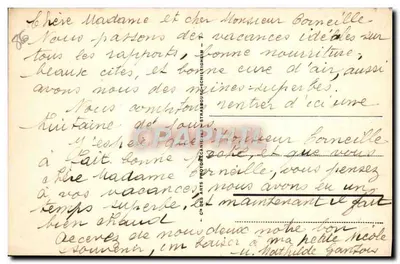 Chère Madame et cher Monsieur Corneille
Nous passons des vacances idéales sur
tous les rapports, bonne nourriture,
beaux cites, et bonne cure d'air, aussi
avons nous des mines superbes.
Nous comptons rentrer d'ici une
huitaine de jours.
J'espère que Monsieur Corneille
à fait bonne pêche, et que vous
chère Madame Corneille, vous pensez
à vos vacances, nous avons eu un
temps superbe, et maintenant il fait
bien chaud
Recevez de nous deux notre bon
souvenir, un baiser à ma petite Nicole
Mathilde